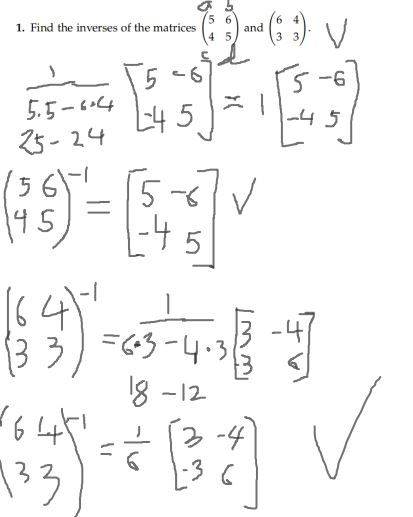 a b
1. Find the inverses of the matrices (5 6 4 5) and (6 4 3 3). √
c d
1 / 5.5-6.4 [5 -6 -4 5] = 1 [5 -6 -4 5]
25-24
(5 6 4 5)^-1 = [5 -6 -4 5] √
(6 4 3 3)^-1 = 1 / 6.3-4.3 [3 -4 -3 6]
18-12
(6 4 3 3)^-1 = 1/6 [3 -4 -3 6] √